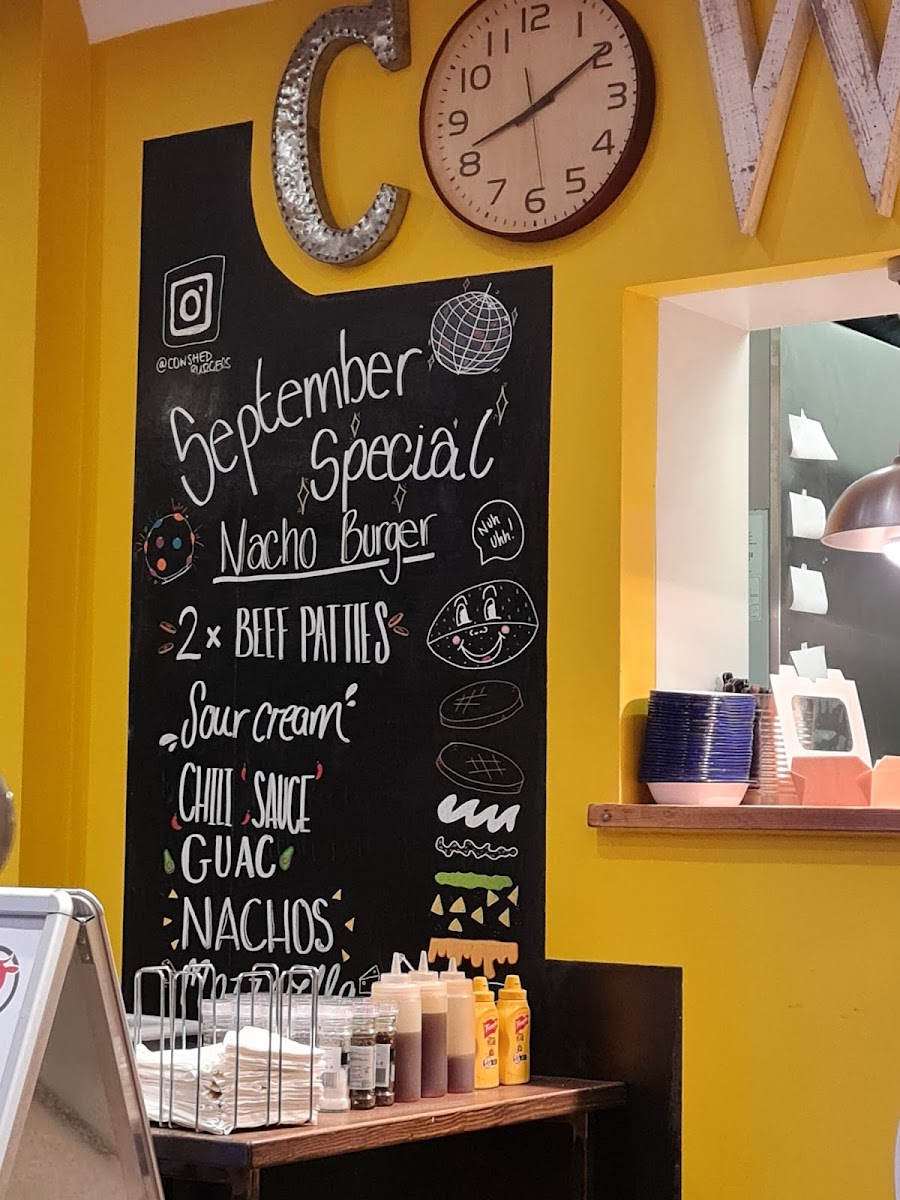 C W
12
1
2
3
4
5
6
7
8
9
10
11
@COWSHED
BURGERS
September
Special
Nacho Burger
Nuh
Uhh!
2 × BEEF PATTIES
Sour cream
CHILI SAUCE
GUAC
NACHOS